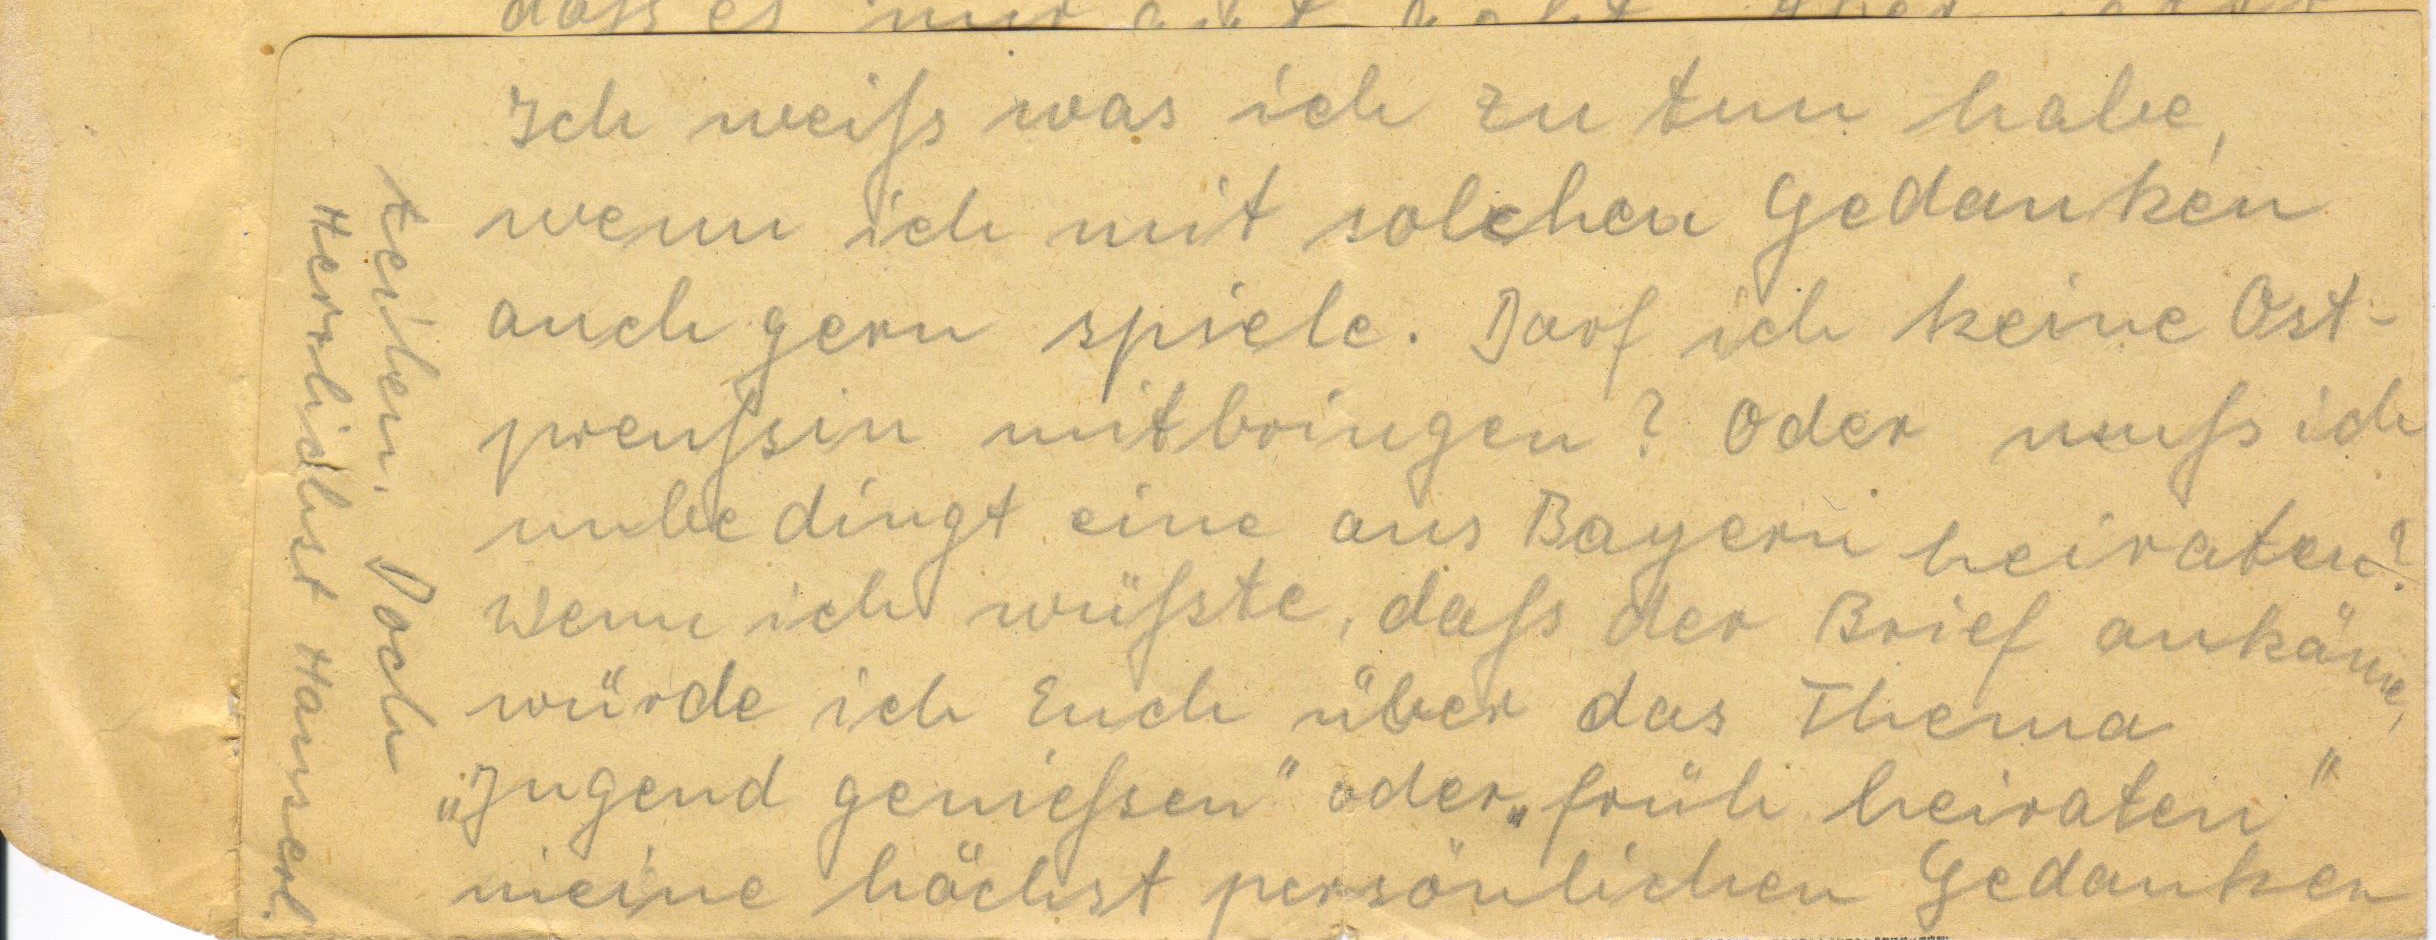 dass es mir gut geht. Aber
Ich weiß was ich zu tun habe,
wenn ich mit solchen Gedanken
auch gern spiele. Darf ich keine Ost-
preußin mitbringen? Oder muß ich
unbedingt eine aus Bayern heiraten?
Wenn ich wüßte, daß der Brief ankäme,
würde ich Euch über das Thema
„Jugend genießen“ oder „früh heiraten“
meine höchst persönlichen Gedanken
Doch
Herrlichst Hanserl.